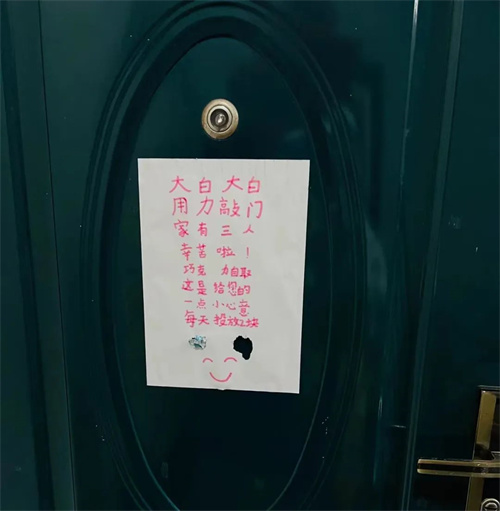 大白大白
用力敲门
家有三人
辛苦啦！
巧克力自取
这是给您的
一点小心意
每天投放2块